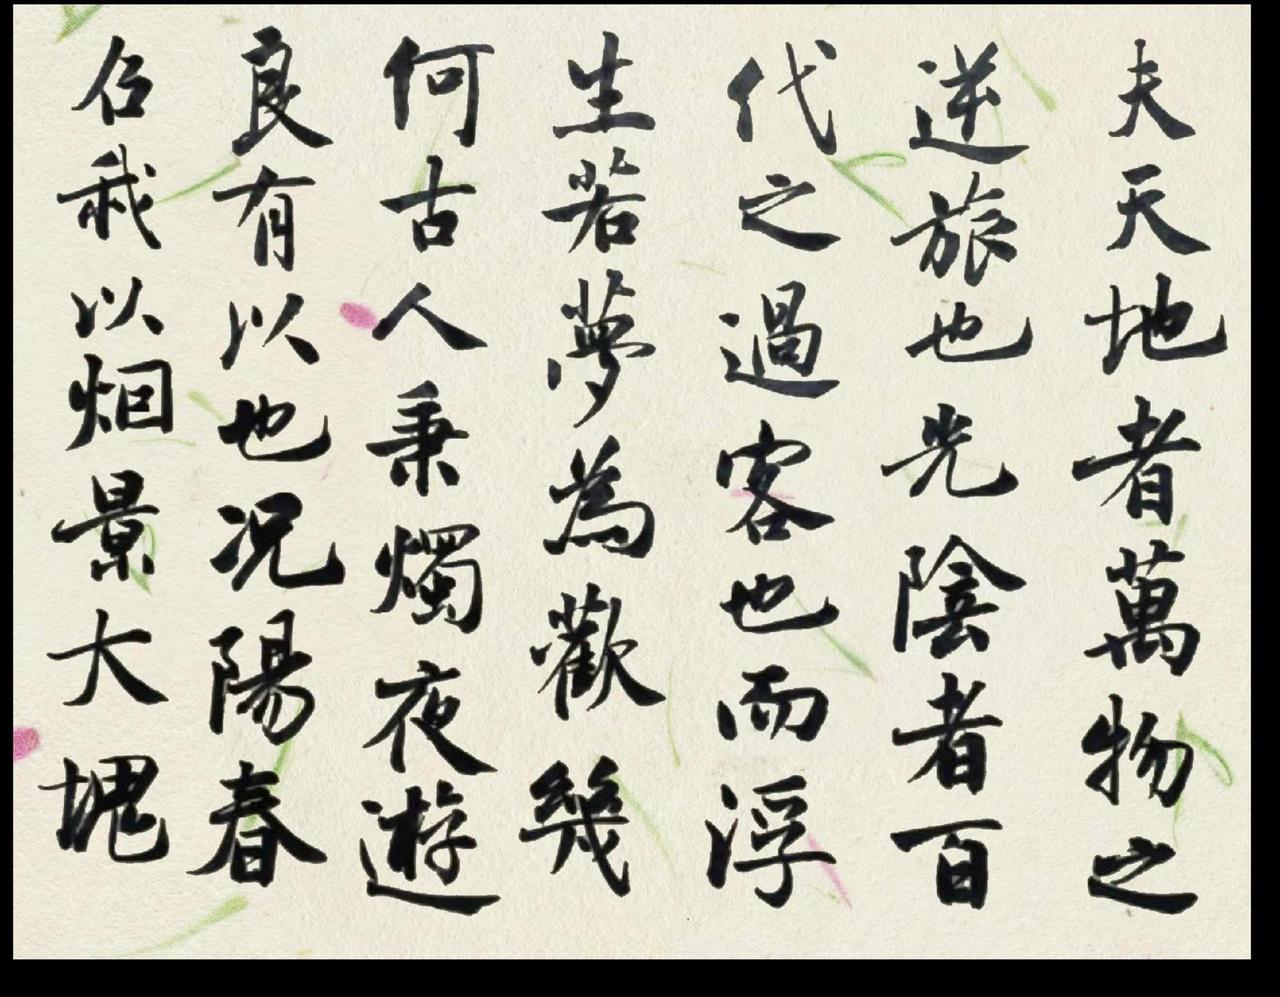 夫天地者萬物之
逆旅也光陰者百
代之過客也而浮
生若夢為歡幾
何古人秉燭夜遊
良有以也況陽春
召我以烟景大塊